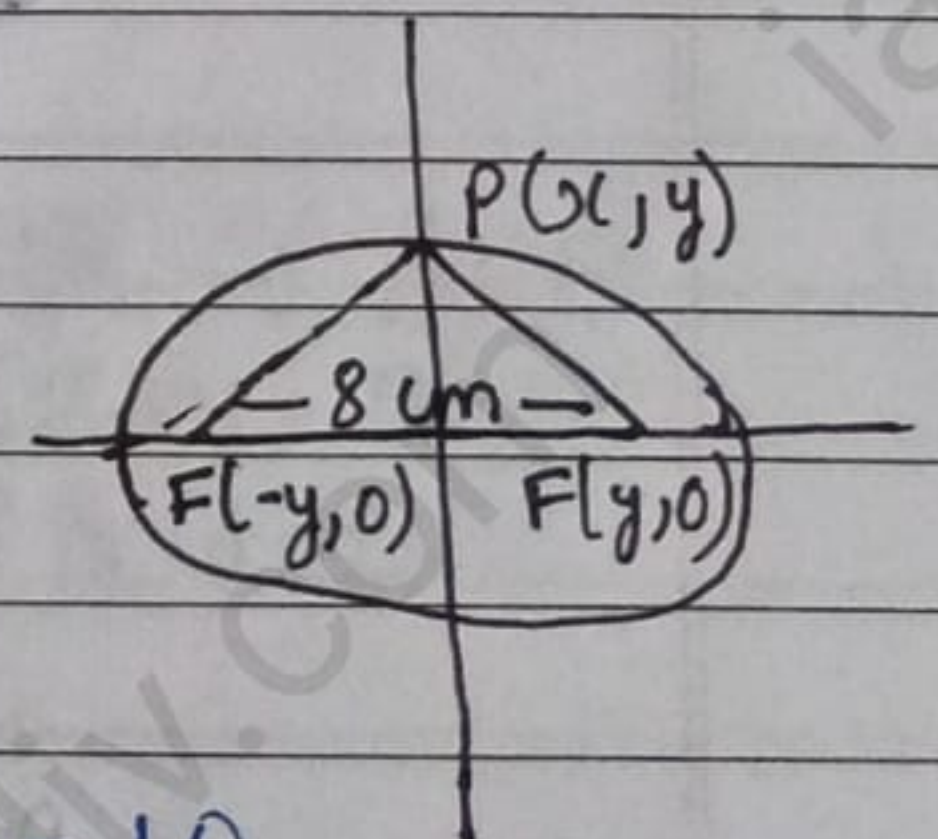 P(x,y)
8 cm
F(-y,0) F(y,0)